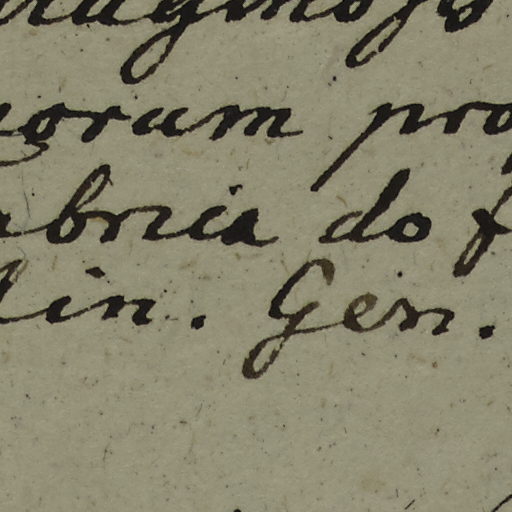 raginoso
goram pro
abrica do f
lin. Gen.